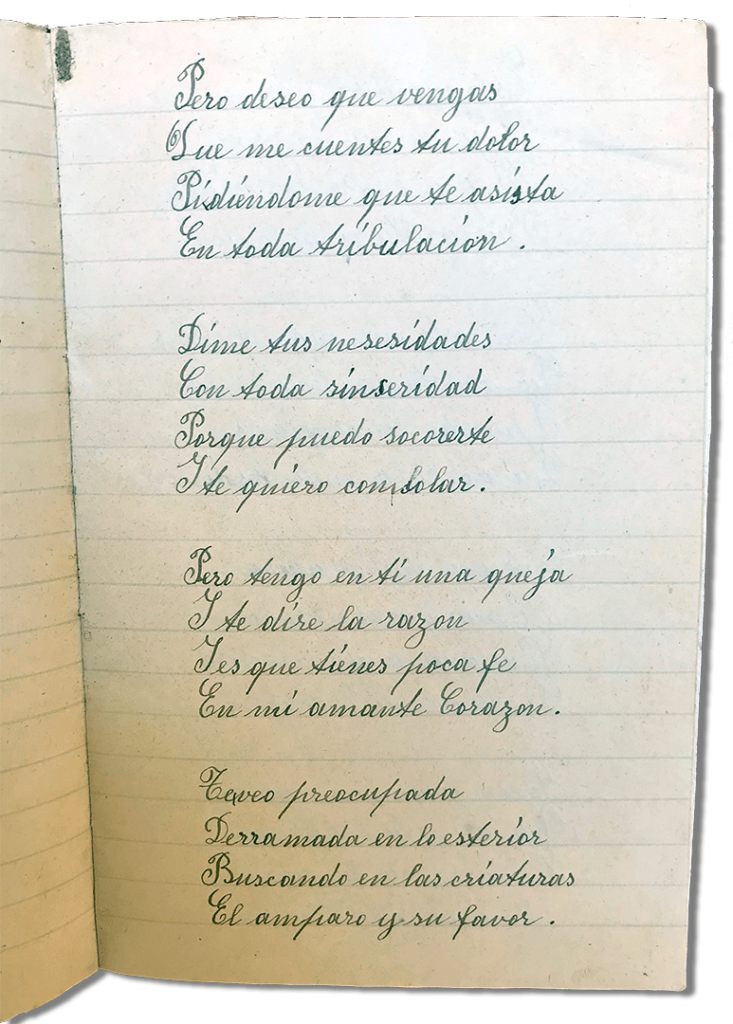 Pero deseo que vengas
Que me cuentes tu dolor
Pidiéndome que te asista
En toda tribulación.
Dime tus nesesidades
Con toda sinseridad
Porque puedo socorerte
I te quiero consolar.
Pero tengo en ti una queja
I te dire la razon
I es que tienes poca fe
En mi amante Corazon.
Te veo preocupada
Derramada en lo esterior
Buscando en las criaturas
El amparo y su favor.